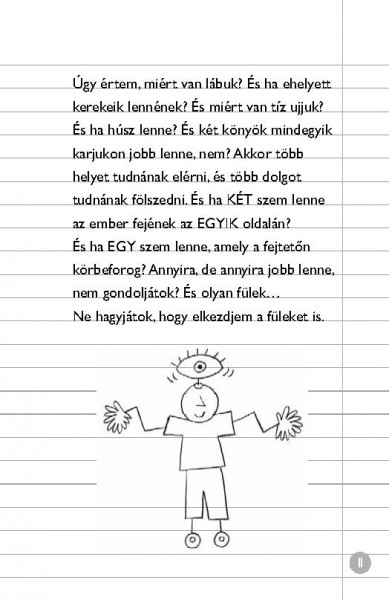 Úgy értem, miért van lábuk? És ha ehelyett
kerekeik lennének? És miért van tíz ujjuk?
És ha húsz lenne? És két könyök mindegyik
karjukon jobb lenne, nem? Akkor több
helyet tudnának elérni, és több dolgot
tudnának fölszedni. És ha KÉT szem lenne
az ember fejének az EGYIK oldalán?
És ha EGY szem lenne, amely a fejtetőn
körbeforog? Annyira, de annyira jobb lenne,
nem gondoljátok? És olyan fülek...
Ne hagyjátok, hogy elkezdjem a füleket is.
11